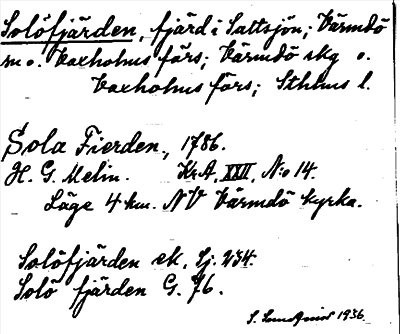 Solöfjärden, fjärd i Saltsjön; Värmdö
sn o. Vaxholms förs; Värmdö skg o.
Vaxholms förs; Sthlms l.
Sola Fierden, 1786.
H. G. Melin. Kr.A. XXII, N:o 14.
Läge 4 km. NV Värmdö kyrka.
Solöfjärden ek. Sj. 234.
Solö fjärden G. 76.
S. 1936.